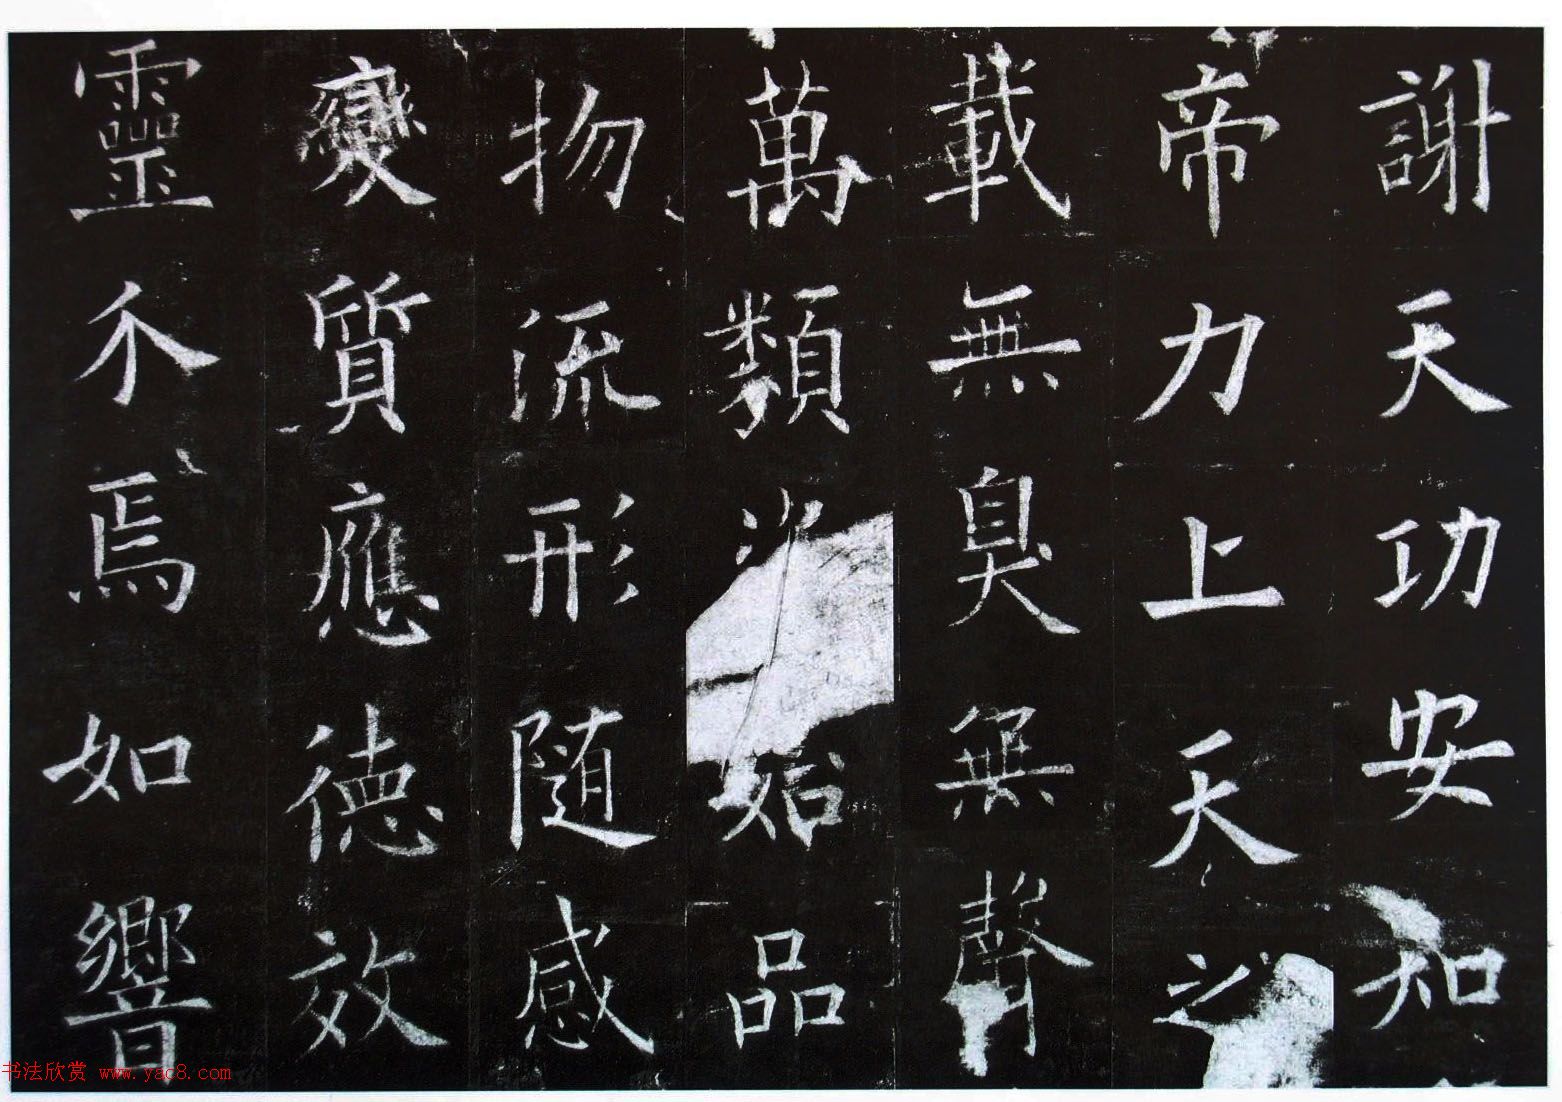 謝天功安知
帝力上天之
載無臭無聲
萬類資始品
物流形隨感
變質應德效
靈尒焉如響
书法欣赏 www.yac8.com